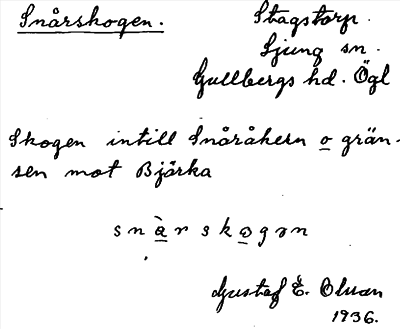 Snårskogen.
Stagstorp.
Ljung sn.
Gullbergs hd. Ögl
Skogen intill Snåråkern o grän-
sen mot Bjärka
snàrskogən
Gustaf E. Olson
1936.